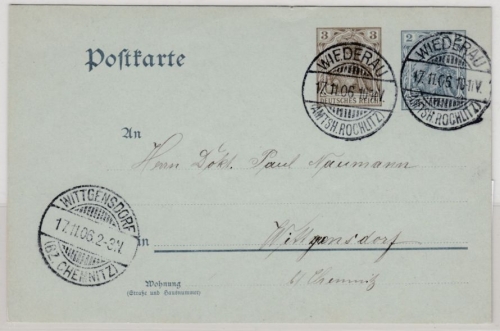 3
2
Postkarte
DEUTSCHES REICH
WIEDERAU
17.11.06.
(AMTSH. ROCHLITZ)
WIEDERAU
17.11.06.
(AMTSH. ROCHLITZ)
An
Herrn Dokt. Paul Naumann
WITTGENSDORF
17.11.06. 2-3N.
(BZ. CHEMNITZ)
in
Wittgensdorf
b/Chemnitz
Wohnung
(Straße und Hausnummer)